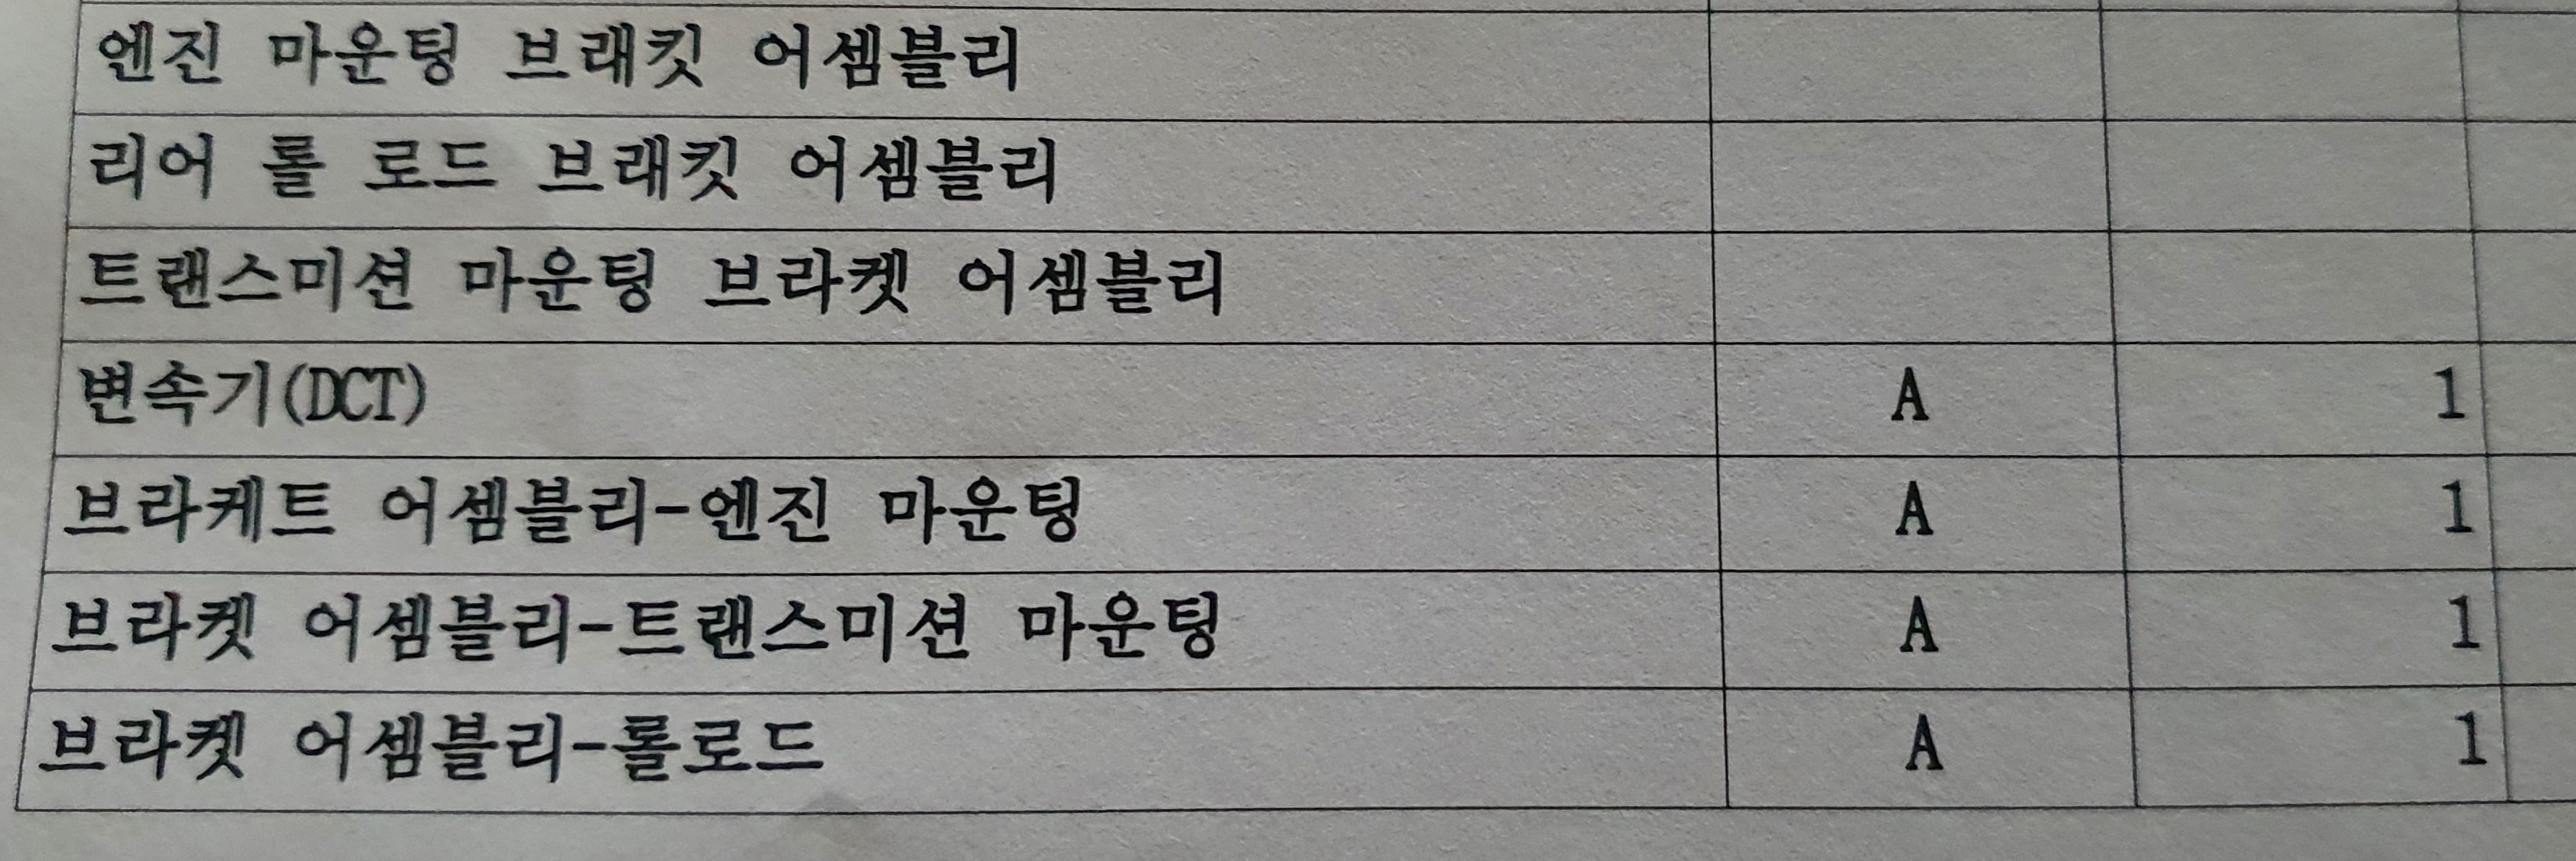 엔진 마운팅 브래킷 어셈블리
리어 롤 로드 브래킷 어셈블리
트랜스미션 마운팅 브라켓 어셈블리
변속기(DCT) A 1
브라케트 어셈블리-엔진 마운팅 A 1
브라켓 어셈블리-트랜스미션 마운팅 A 1
브라켓 어셈블리-롤로드 A 1